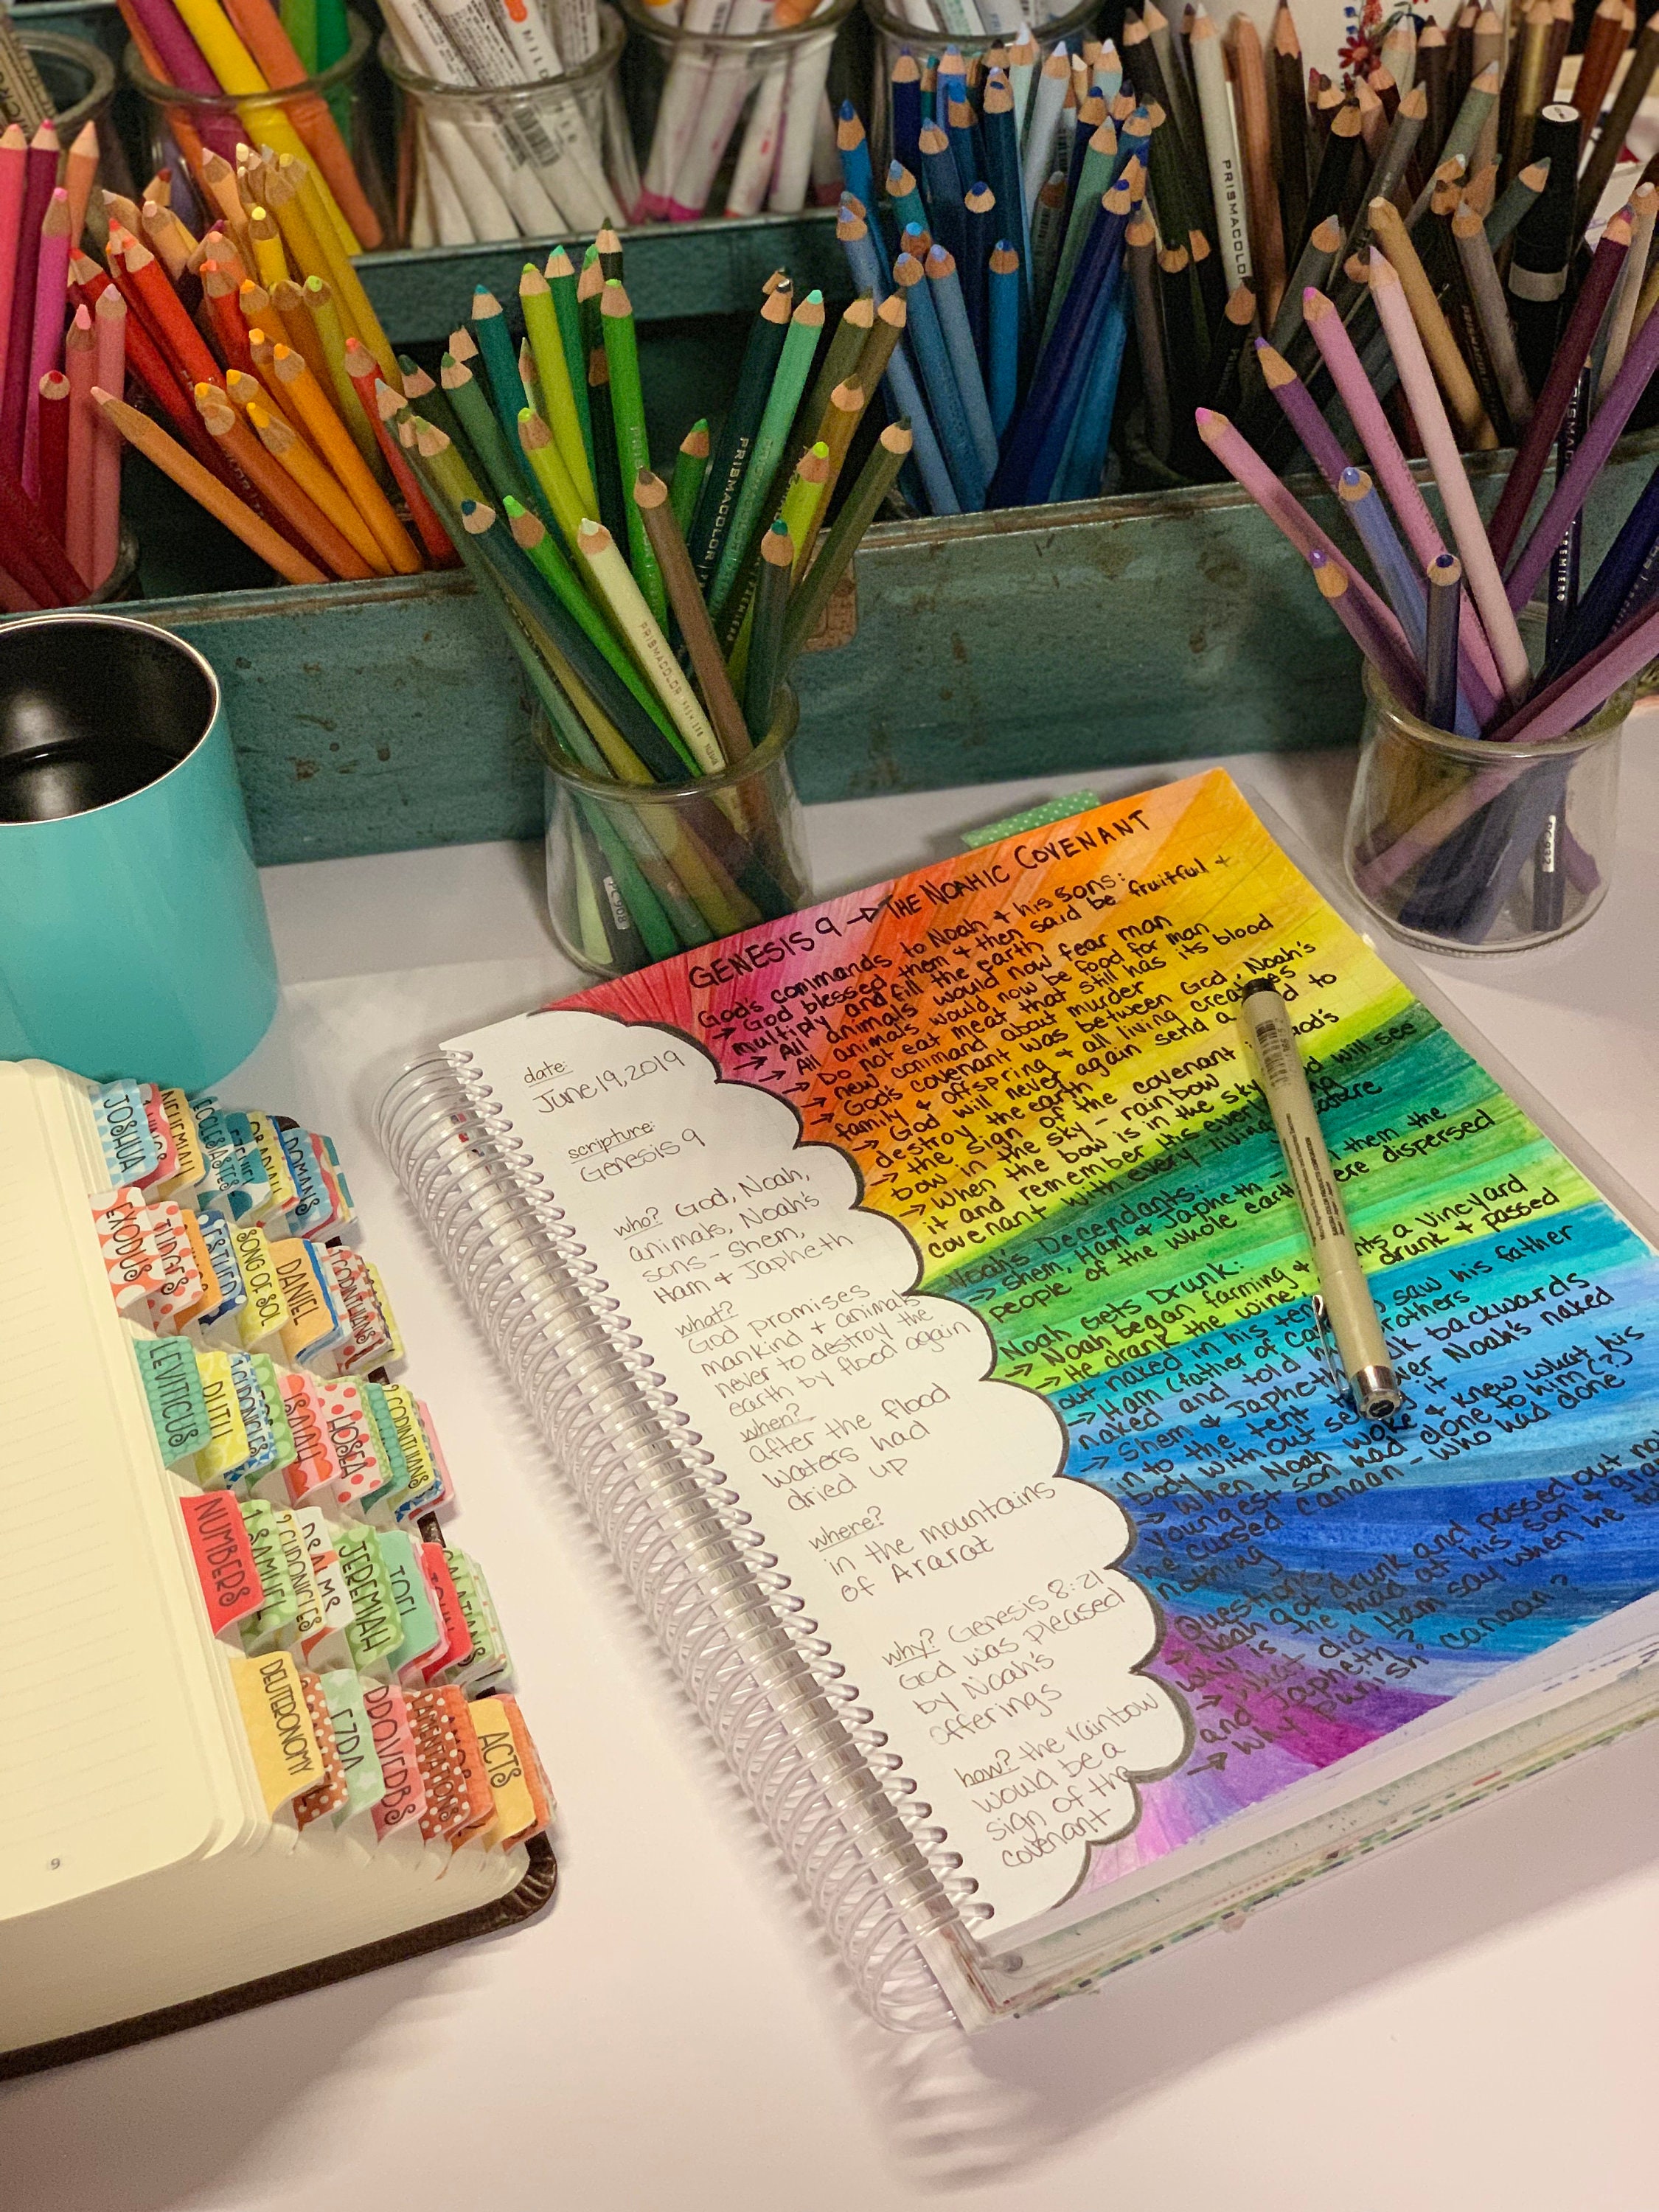 PRISMACOLOR
PRISMACOLOR
PRISMACOLOR
JOSHUA
NEHEMIAH
ECCLESIASTES
EZEKIEL
OBADIAH
ROMANS
EXODUS
JUDGES
ESTHER
SONG OF SOL
DANIEL
CORINTHIANS
LEVITICUS
RUTH
1 CHRONICLES
ISAIAH
HOSEA
2 CORINTHIANS
NUMBERS
1 SAMUEL
2 CHRONICLES
PSALMS
JEREMIAH
JOEL
JOHN
GALATIANS
DEUTERONOMY
EZRA
PROVERBS
LAMENTATIONS
ACTS
9
date:
June 19, 2019
scripture:
Genesis 9
who? God, Noah,
animals, Noah's
sons - Shem,
Ham + Japheth
what?
God promises
mankind + animals
never to destroy the
earth by flood again
when?
after the flood
waters had
dried up
where?
in the mountains
of Ararat
why? Genesis 8:21
God was pleased
by Noah's
offerings
how? the rainbow
would be a
sign of the
covenant
GENESIS 9 → THE NOAHIC COVENANT
God's commands to Noah + his sons:
→ God blessed them + then said be fruitful +
multiply and fill the earth
→ All animals would now fear man
→ All animals would now be food for man
→ Do not eat meat that still has its blood
→ new command about murder
→ God's covenant was between God, Noah's
family + offspring + all living creatures
→ God will never again send a to
destroy the earth
→ the sign of the covenant God's
bow in the sky - rainbow
→ When the bow is in the sky God will see
it and remember his everlasting
covenant with every living creature
Noah's Decendants:
→ Shem, Ham + Japheth - them the
people of the whole earth were dispersed
Noah Gets Drunk:
→ Noah began farming + plants a vineyard
→ He drank the wine, drunk + passed
out naked in his tent
→ Ham (father of Canaan) saw his father
naked and told his brothers
→ Shem + Japheth walk backwards
into the tent to cover Noah's naked
body without seeing it
→ When Noah woke + knew what his
youngest son had done to him (?)
he cursed Canaan - who had done
nothing
Questions
→ Noah got drunk and passed out
why is he mad at his son +
→ What did Ham say when he told
and Japheth?
→ Why punish Canaan?